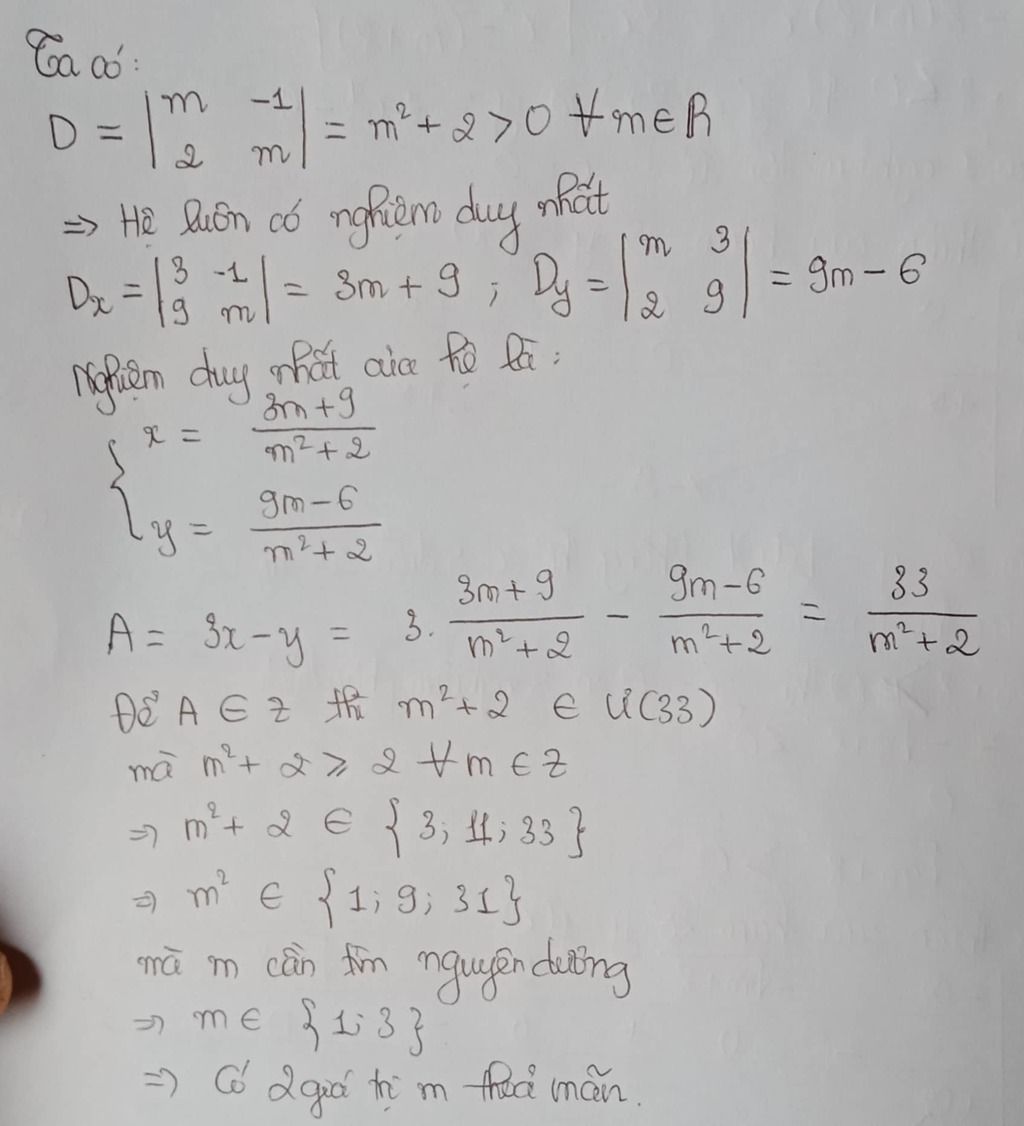 Ta có:
D = |m -1; 2 m| = m² + 2 > 0 ∀m∈R
=> Hệ luôn có nghiệm duy nhất
Dx = |3 -1; 9 m| = 3m + 9 ; Dy = |m 3; 2 9| = 9m - 6
Nghiệm duy nhất của hệ là:
{ x = (3m+9)/(m²+2)
y = (9m-6)/(m²+2)
A = 3x - y = 3. (3m+9)/(m²+2) - (9m-6)/(m²+2) = 33/(m²+2)
Để A ∈ Z thì m² + 2 ∈ Ư(33)
mà m² + 2 ⩾ 2 ∀m ∈ Z
=> m² + 2 ∈ {3; 11; 33}
=> m² ∈ {1; 9; 31}
mà m cần tìm nguyên dương
=> m ∈ {1; 3}
=> Có 2 giá trị m thoả mãn.